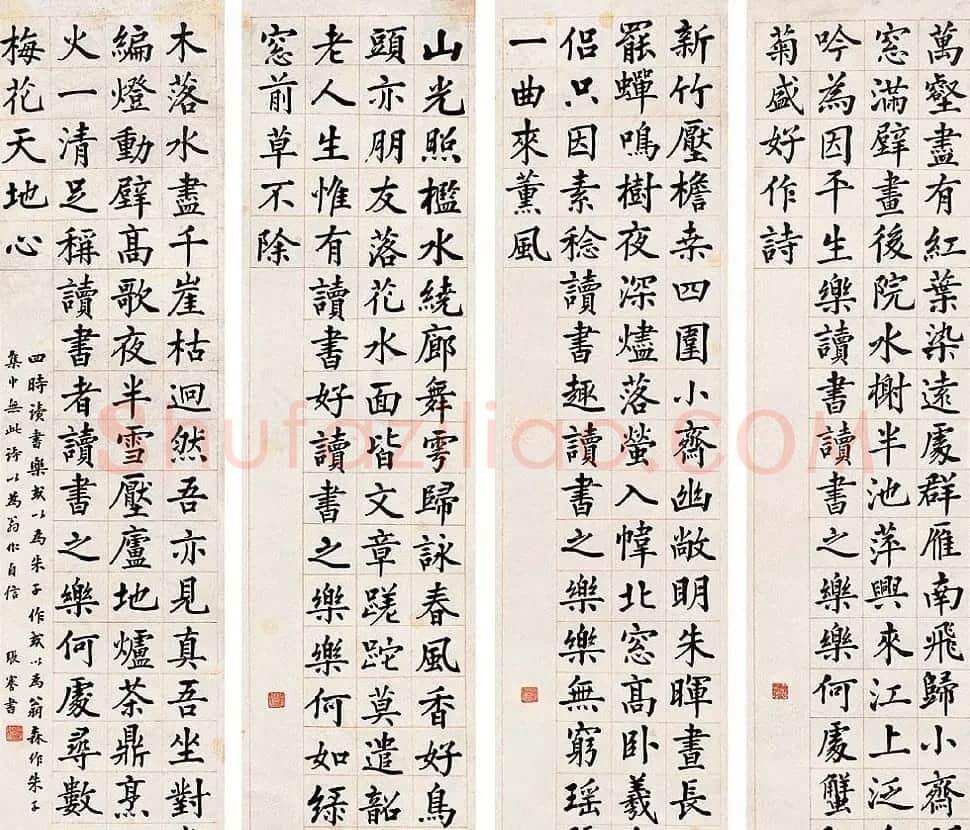 萬壑盡有紅葉染遠處群雁南飛歸小齋
窓滿壁畫後院水榭半池萍興來江上泛
吟為因平生樂讀書讀書之樂樂何處蟹
菊盛好作詩
新竹壓檐桒四圍小齋幽敞明朱暉晝長
罷蟬鳴樹夜深燼落螢入幃北窓高卧羲
侣只因素稔讀書趣讀書之樂樂無窮瑶
一曲來薰風
山光照檻水繞廊舞雩歸詠春風香好鳥
頭亦朋友落花水面皆文章蹉跎莫遣韶
老人生惟有讀書好讀書之樂樂何如緑
窓前草不除
木落水盡千崖枯迥然吾亦見真吾坐對
編燈動壁高歌夜半雪壓廬地爐茶鼎烹
火一清足稱讀書者讀書之樂何處尋數
梅花天地心
四時讀書樂或以為朱子作或以為翁森作朱子
集中無此詩以為翁作自信 張謇書
Shufaziliao.COM